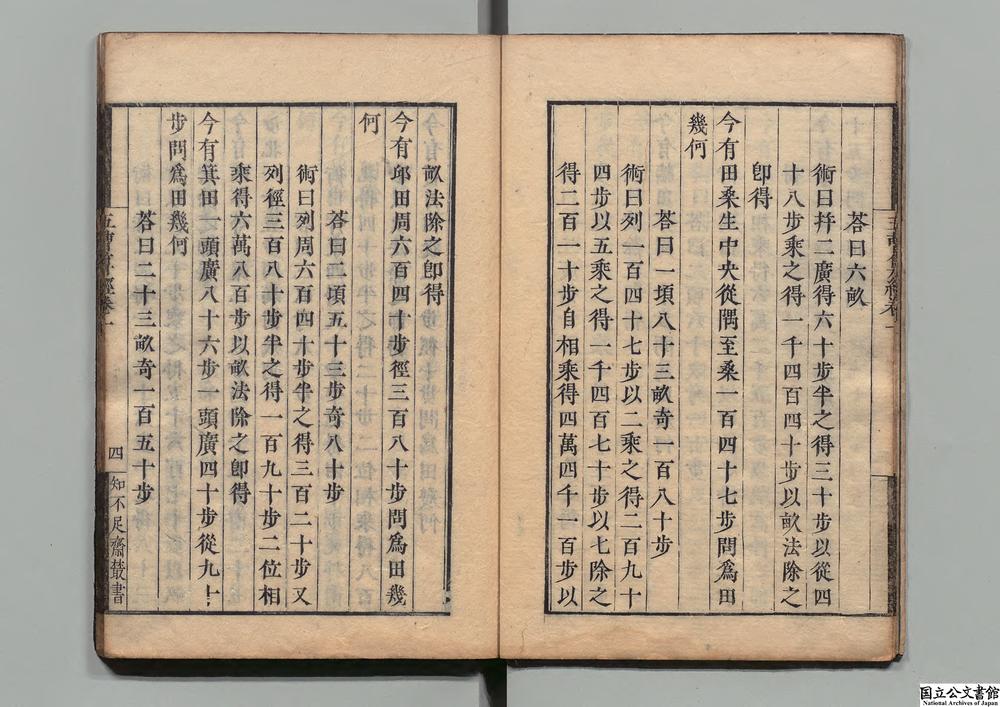 荅曰六畝
術曰幷二廣得六十步半之得三十步以從四
十八步乘之得一千四百四十步以畝法除之
卽得
今有田桑生中央從隅至桑一百四十七步問爲田
幾何
荅曰一頃八十三畝奇一百八十步
術曰列一百四十七步以二乘之得二百九十
四步以五乘之得一千四百七十步以七除之
得二百一十步自相乘得四萬四千一百步以
畝法除之卽得
今有邱田周六百四十步徑三百八十步問爲田幾
何
荅曰二頃五十三畝奇八十步
術曰列周六百四十步半之得三百二十步又
列徑三百八十步半之得一百九十步二位相
乘得六萬八百步以畝法除之卽得
今有箕田一頭廣八十六步一頭廣四十步從九十
步問爲田幾何
荅曰二十三畝奇一百五十步
五曹算經卷一
四
知不足齋叢書
国立公文書館
National Archives of Japan